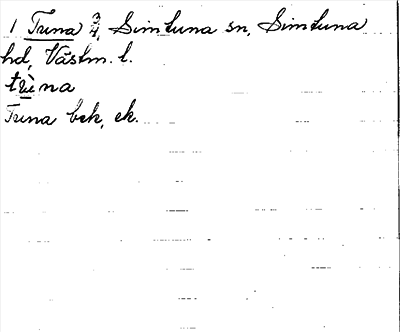 1 Truna 3/4, Simtuna sn, Simtuna
hd, Västm. l.
trùna
Truna bek, ek.